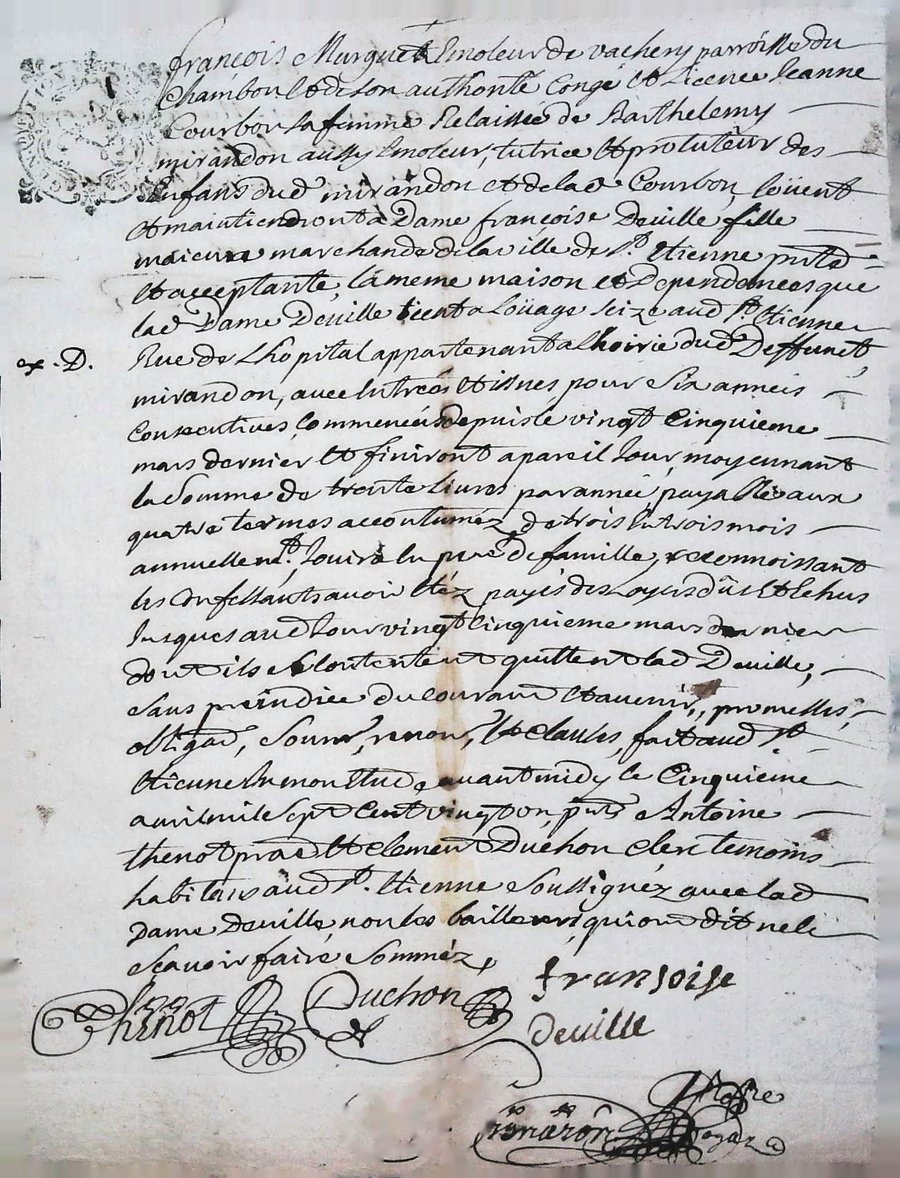 françois Murguet Emoleur de vachery parroisse du
Chambon Et de son authorité Congé et Licence Jeanne
Courbon sa femme Relaissée de Barthelemy
mirandon aussy Emoleur, tutrice Et protuteur des
Enfans dud mirandon et de lad Courbon, loüent
Et maintiendront a Dame françoise Deville fille
maieure marchande de la ville de St. Etienne pnte
Et acceptante, la meme maison et Dependences que
lad Dame Deville tient a Loüage seize aud St. Etienne
ex. D. Rue de Lhopital appartenant a Lhoirie dud Deffunct
mirandon, avec Entrées Et issues pour Six années
Consecutives, Commencées depuis le vingt Cinquieme
mars dernier Et finiront a pareil Jour, moyennant
la Somme de trente Livres par année payables aux
quatre termes accoutumez de trois En trois mois
annuellemt. Jouira En pere de famille, reconnoissant
les Confessants avoir Etéz payés des Loyers dûs Et Echus
Jusques aud Jour vingt Cinquieme mars dernier
dont ils se Contentent quittent lad Deville,
sans prejudice du Courant Et avenir, promesses,
obligaõ, Soumõ, renonõ, Et Clauses, fait aud St.
Etienne En mon Etude avant midy le Cinquieme
avril mil Sept Cent vingt on, pnts Antoine
thenot prat Et Clement Duchon Clerc temoins
habitans aud St. Etienne Soussignéz avec lad
Dame Deville non les bailleurs qui ont dit ne le
Sçavoir faire Sommez
Thenot Duchon françoise
Deville